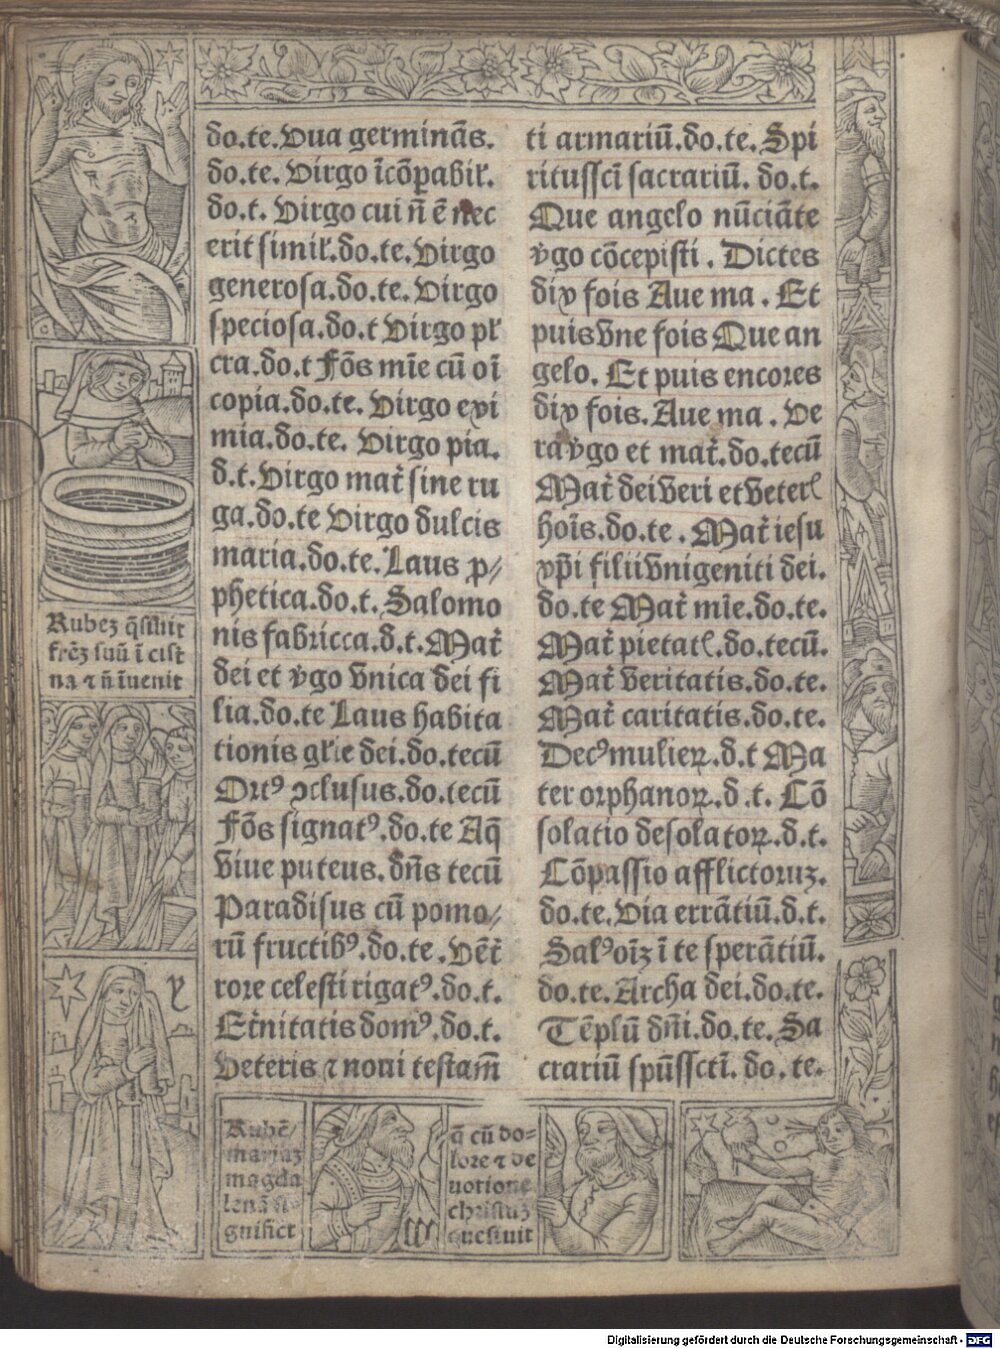 do.te.Vua germinãs.
do.te. Virgo ĩcõꝑabiľ.
do.t. Virgo cui ñ ẽ nec
erit simiľ.do.te. Virgo
generosa.do.te. Virgo
speciosa.do.t Virgo pľ
cra.do.t Fõs mĩe cũ oĩ
copia.do.te. Virgo exi
mia.do.te. Virgo pia.
d.t. Virgo mat᷑ sine ru
ga.do.te Virgo dulcis
maria.do.te. Laus p̱/
phetica.do.t. Salomo
nis fabricca.d.t. Mat᷑
dei et v᷑go vnica dei fi
lia.do.te Laus habita
tionis gľie dei.do.tecũ
Ortꝰ ꝯclusus.do.tecũ
Fõs signatꝰ.do.te Aq̃
viue puteus. dñs tecũ
Paradisus cũ pomo/
rũ fructibꝰ.do.te. Vẽt᷑
rore celesti rigatꝰ.do.t.
Et᷑nitatis domꝰ.do.t.
Veteris ⁊ noui testam̃
ti armariũ.do.te. Spi
ritussc̃i sacrariũ. do.t.
Que angelo nũciãte
v᷑go cõcepisti. Dictes
dix fois Aue ma. Et
puis vne fois Que an
gelo. Et puis encores
dix fois. Aue ma. Ve
ra v᷑go et mat᷑.do.tecũ
Mat᷑ dei veri et veterꝭ
hoĩs.do.te. Mat᷑ iesu
xp̃i filii vnigeniti dei.
do.te Mat᷑ mĩe.do.te.
Mat᷑ pietatꝭ.do.tecũ.
Mat᷑ veritatis.do.te.
Mat᷑ caritatis.do.te.
Decꝰ mulieꝝ.d.t Ma
ter orphanoꝝ.d.t. Cõ
solatio desolatoꝝ.d.t.
Cõpassio afflictoruz.
do.te. Via errãtiũ.d.t.
Salꝰ oĩz ĩ te sperãtiũ.
do.te. Archa dei.do.te.
Tẽplũ dñi.do.te. Sa
crariũ sp̃ussctĩ. do.te.
Rubez q̃siuit
frẽz suũ ĩ cist᷑
na ⁊ ñ ĩuenit
y
Rubẽ/
mariaz
magda
lenã si
gnificet
q̃ cũ do=
lore ⁊ de
uotione
christuz
quesiuit
Digitalisierung gefördert durch die Deutsche Forschungsgemeinschaft - DFG